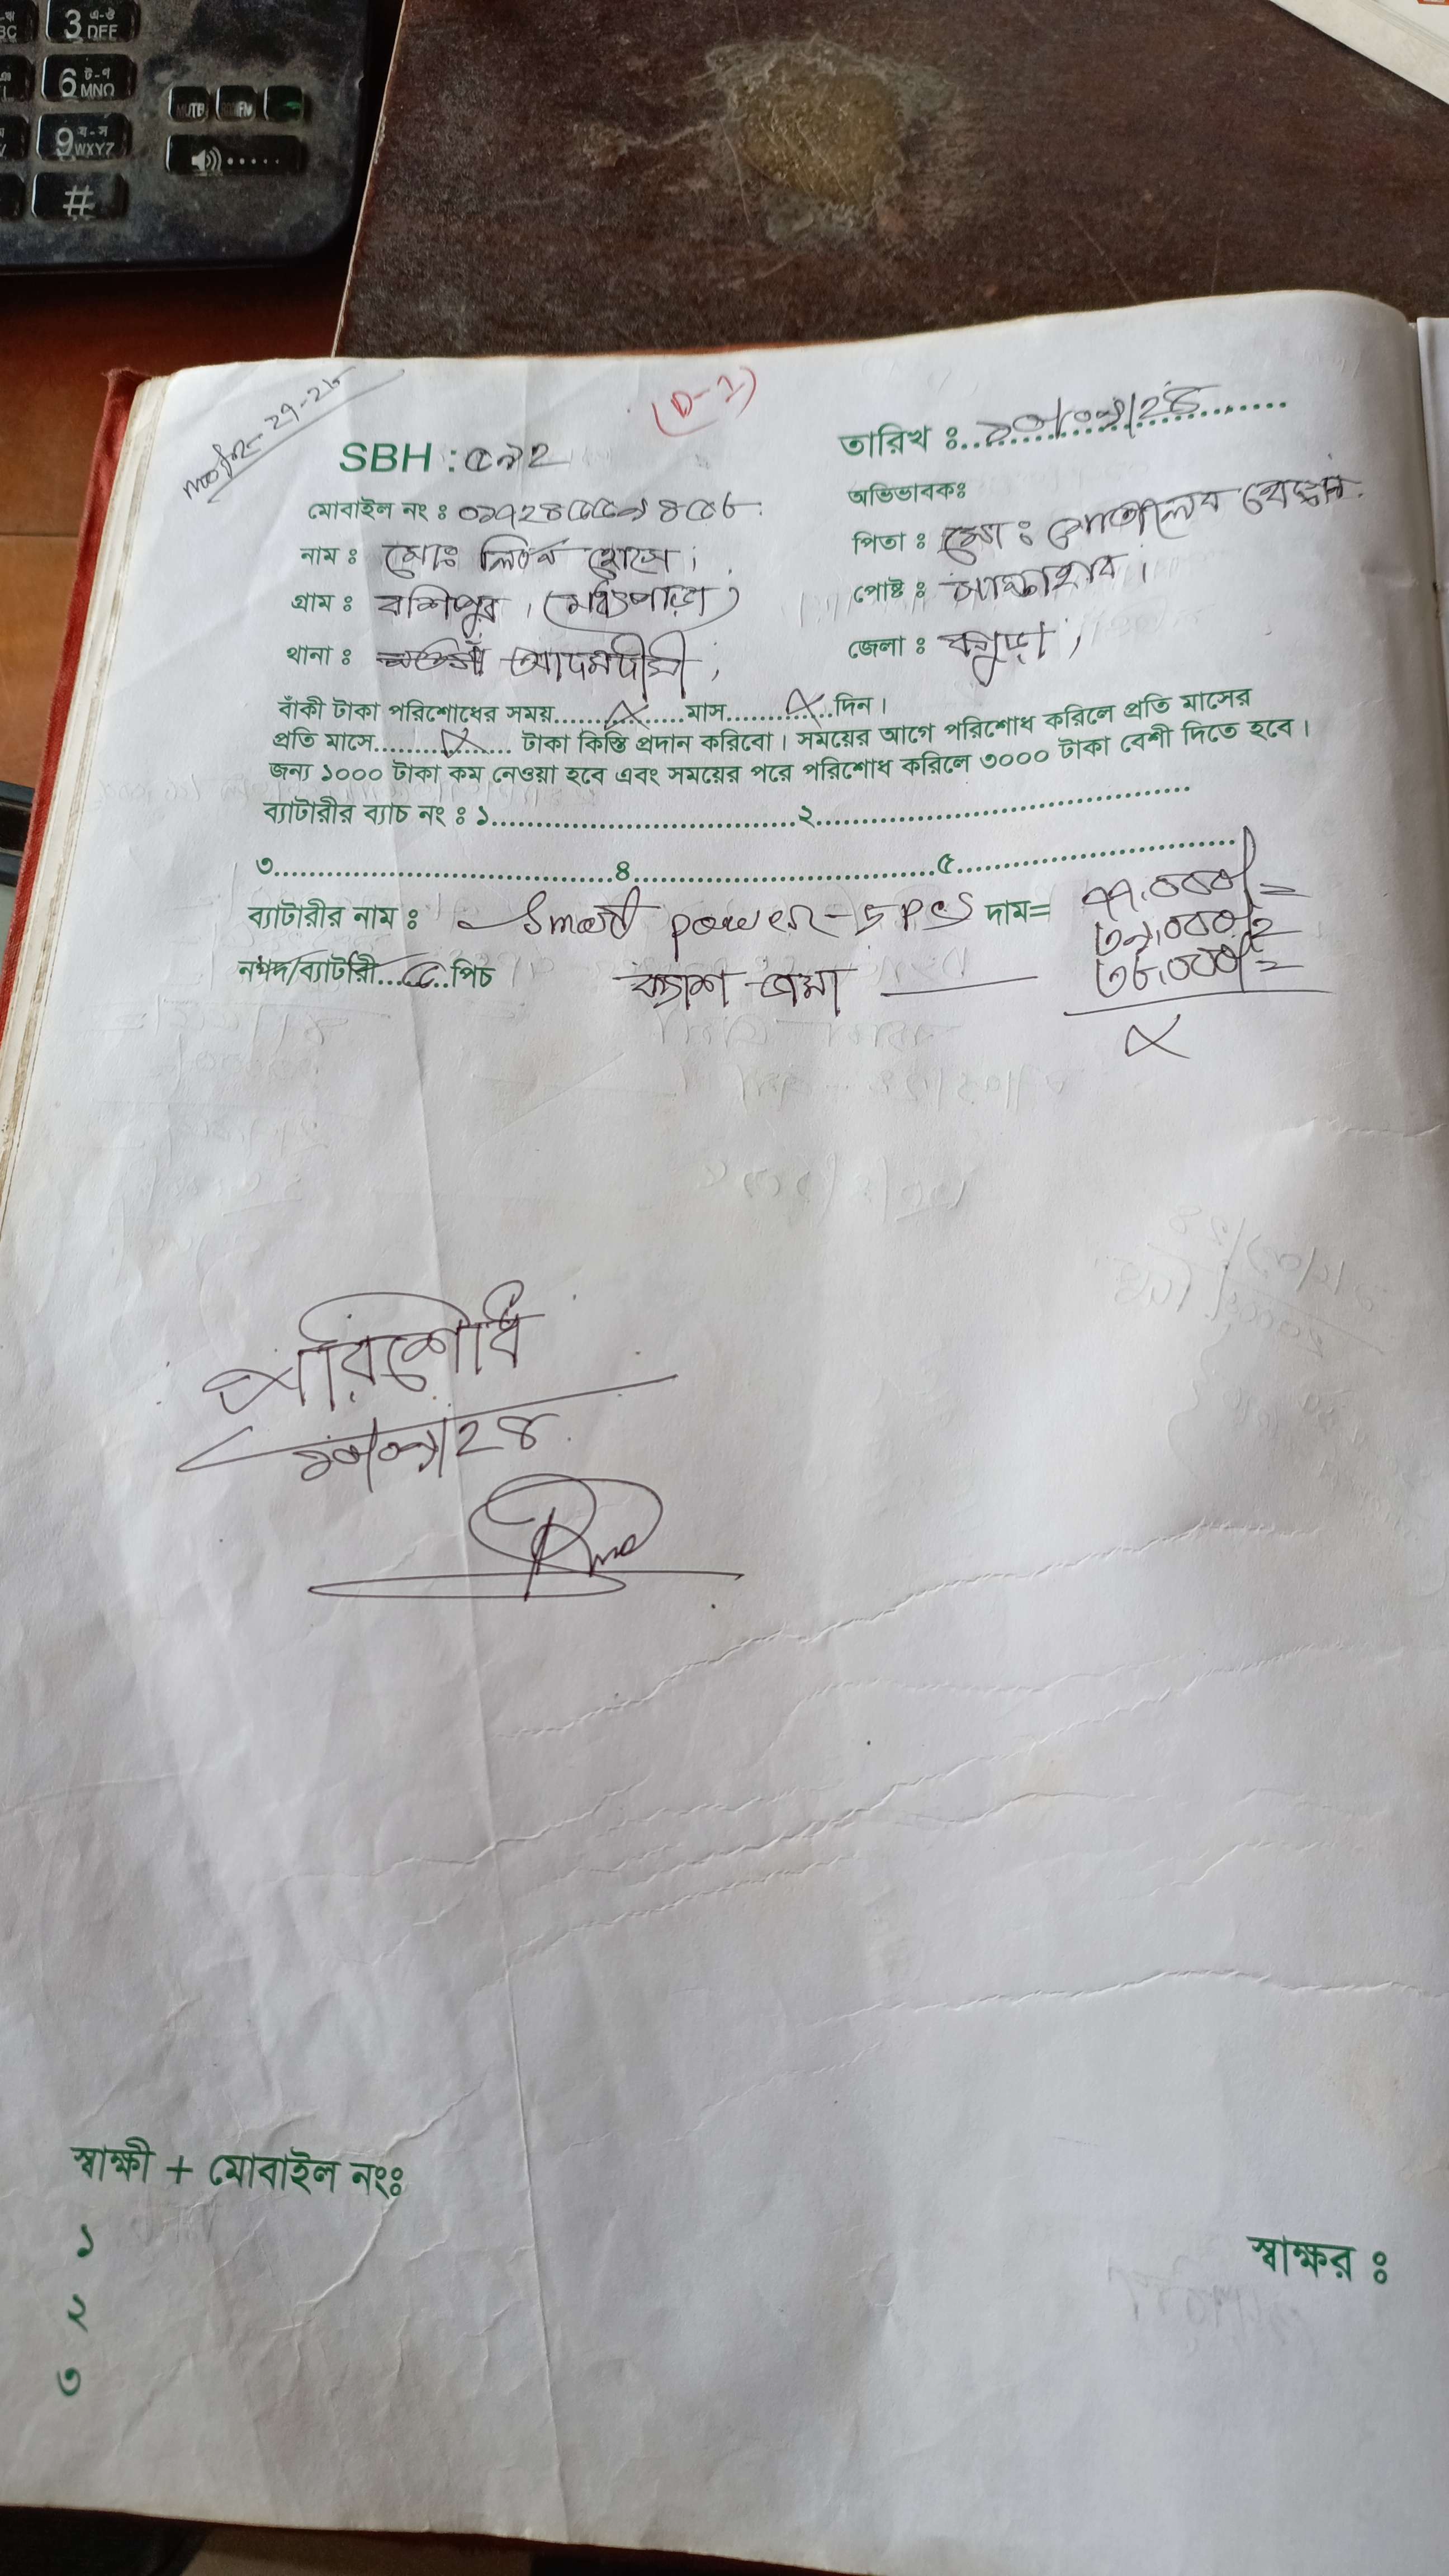 3 এ-ঐ DEF
6 ট-ণ MNO
9 য-স WXYZ
#
MUTE
(D-1)
SBH : ৫৯২
তারিখ ঃ ১০/০৯/২৪
মোবাইল নং ঃ ০১৭২৪৫৫৯৪৫৮
অভিভাবকঃ
নাম ঃ মোঃ লিটন হোসে।
পিতা ঃ মোঃ মোতালেব হোসেন.
গ্রাম ঃ বশিপুর। (মন্ডপাড়া)
পোষ্ট ঃ সান্তাহার।
থানা ঃ আদমদীঘী,
জেলা ঃ বগুড়া,
বাঁকী টাকা পরিশোধের সময়.......X......মাস.......X....দিন।
প্রতি মাসে.......X...... টাকা কিস্তি প্রদান করিবো। সময়ের আগে পরিশোধ করিলে প্রতি মাসের
জন্য ১০০০ টাকা কম নেওয়া হবে এবং সময়ের পরে পরিশোধ করিলে ৩০০০ টাকা বেশী দিতে হবে।
ব্যাটারীর ব্যাচ নং ঃ ১..............................২..............................
৩..............................৪..............................৫..............................
ব্যাটারীর নাম ঃ Smart power-5 PCS দাম= ৭৭,০০০/=
৩৯,০০০/=
নগদ/ব্যাটারী...৫...পিচ ক্যাশ জমা — ৩৮,০০০/=
X
পরিশোধ
১০/০৯/২৪
স্বাক্ষী + মোবাইল নংঃ
১
স্বাক্ষর ঃ
২
৩